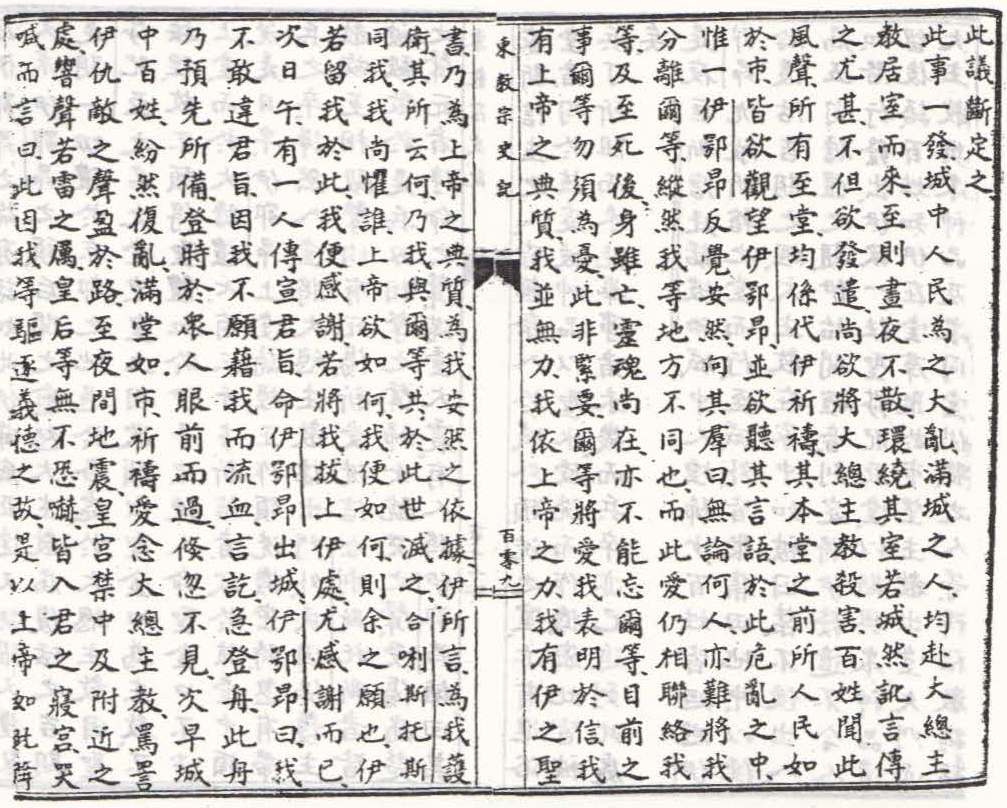 此議斷定之、
此事一發、城中人民為之大亂、滿城之人、均赴大總主
教居室而來、至則晝夜不散、環繞其室若城然、訛言傳
之尤甚、不但欲發遣、尚欲將大總主教殺害、百姓聞此
風聲、所有至堂、均係代伊祈禱、其本堂之前所人民如
於市、皆欲觀望伊鄂昂、並欲聽其言語、於此危亂之中、
惟一伊鄂昂反覺安然、向其羣曰、無論何人、亦難將我
分離爾等、縱然我等地方不同也、而此愛仍相聯絡、我
等、及至死後、身雖亡、靈魂尚在、亦不能忘爾等、目前之
事、爾等勿須為憂、此非緊要、爾等將愛我表明於信、我
有上帝之典質、我並無力、我依上帝之力、我有伊之聖
東教宗史記
百零九
書、乃為上帝之典質、為我安然之依據、伊所言、為我護
衛、其所云何、乃我與爾等共於此世滅之、合唎斯托斯
同我、我尚懼誰、上帝欲如何、我便如何、則余之願也、伊
若留我於此、我便感謝、若將我拔上伊處、尤感謝而已、
次日午、有一人傳宣君旨、命伊鄂昂出城、伊鄂昂曰、我
不敢違君旨、因我不願藉我而流血、言訖、急登舟、此舟
乃預先所備、登時於衆人眼前而過、倏忽不見、次早城
中百姓、紛然復亂、滿堂如市、祈禱愛念大總主教、罵詈
伊仇敵之聲盈於路、至夜間地震、皇宮禁中及附近之
處、響聲若雷之厲、皇后等無不恐嚇、皆入君之寢宮、哭
喊而言曰、此因我等驅逐義德之故、是以上帝如此降